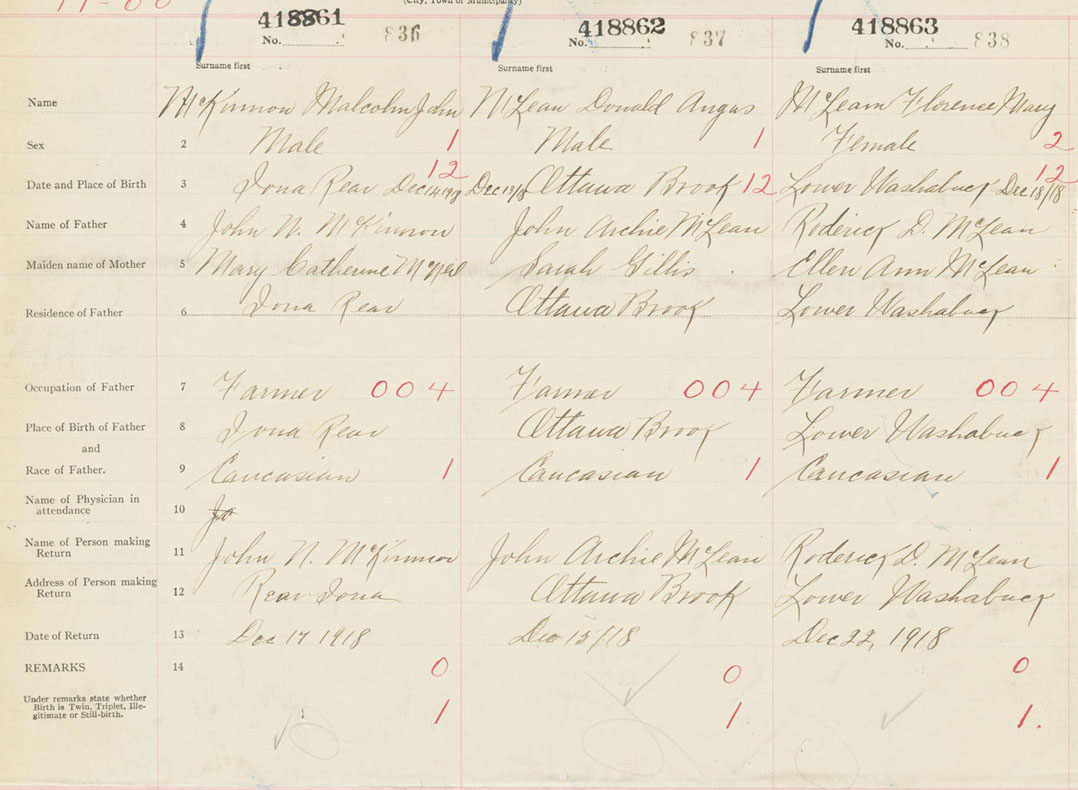 (City, Town or Municipality)
418861 418862 418863
No. 836 No. 837 No. 838
Surname first Surname first Surname first
Name McKinnon Malcolm John McLean Donald Angus McLean Florence Mary
Sex 2 Male 1 Male 1 Female 2
12 12
Date and Place of Birth 3 Iona Rear Dec 14 1918 Dec 13/18 Ottawa Brook 12 Lower Washabuck Dec 18/18
Name of Father 4 John N. McKinnon John Archie McLean Roderick D. McLean
Maiden name of Mother 5 Mary Catherine McNeil Sarah Gillis Ellen Ann McLean
Residence of Father 6 Iona Rear Ottawa Brook Lower Washabuck
Occupation of Father 7 Farmer 004 Farmer 004 Farmer 004
Place of Birth of Father 8 Iona Rear Ottawa Brook Lower Washabuck
and
Race of Father. 9 Caucasian 1 Caucasian 1 Caucasian 1
Name of Physician in
attendance 10 Jo
Name of Person making
Return 11 John N. McKinnon John Archie McLean Roderick D. McLean
Address of Person making
Return 12 Rear Iona Ottawa Brook Lower Washabuck
Date of Return 13 Dec 17 1918 Dec 15/18 Dec 22, 1918
REMARKS 14 0 0 0
Under remarks state whether
Birth is Twin, Triplet, Ille-
gitimate or Still-birth. 1 1 1.